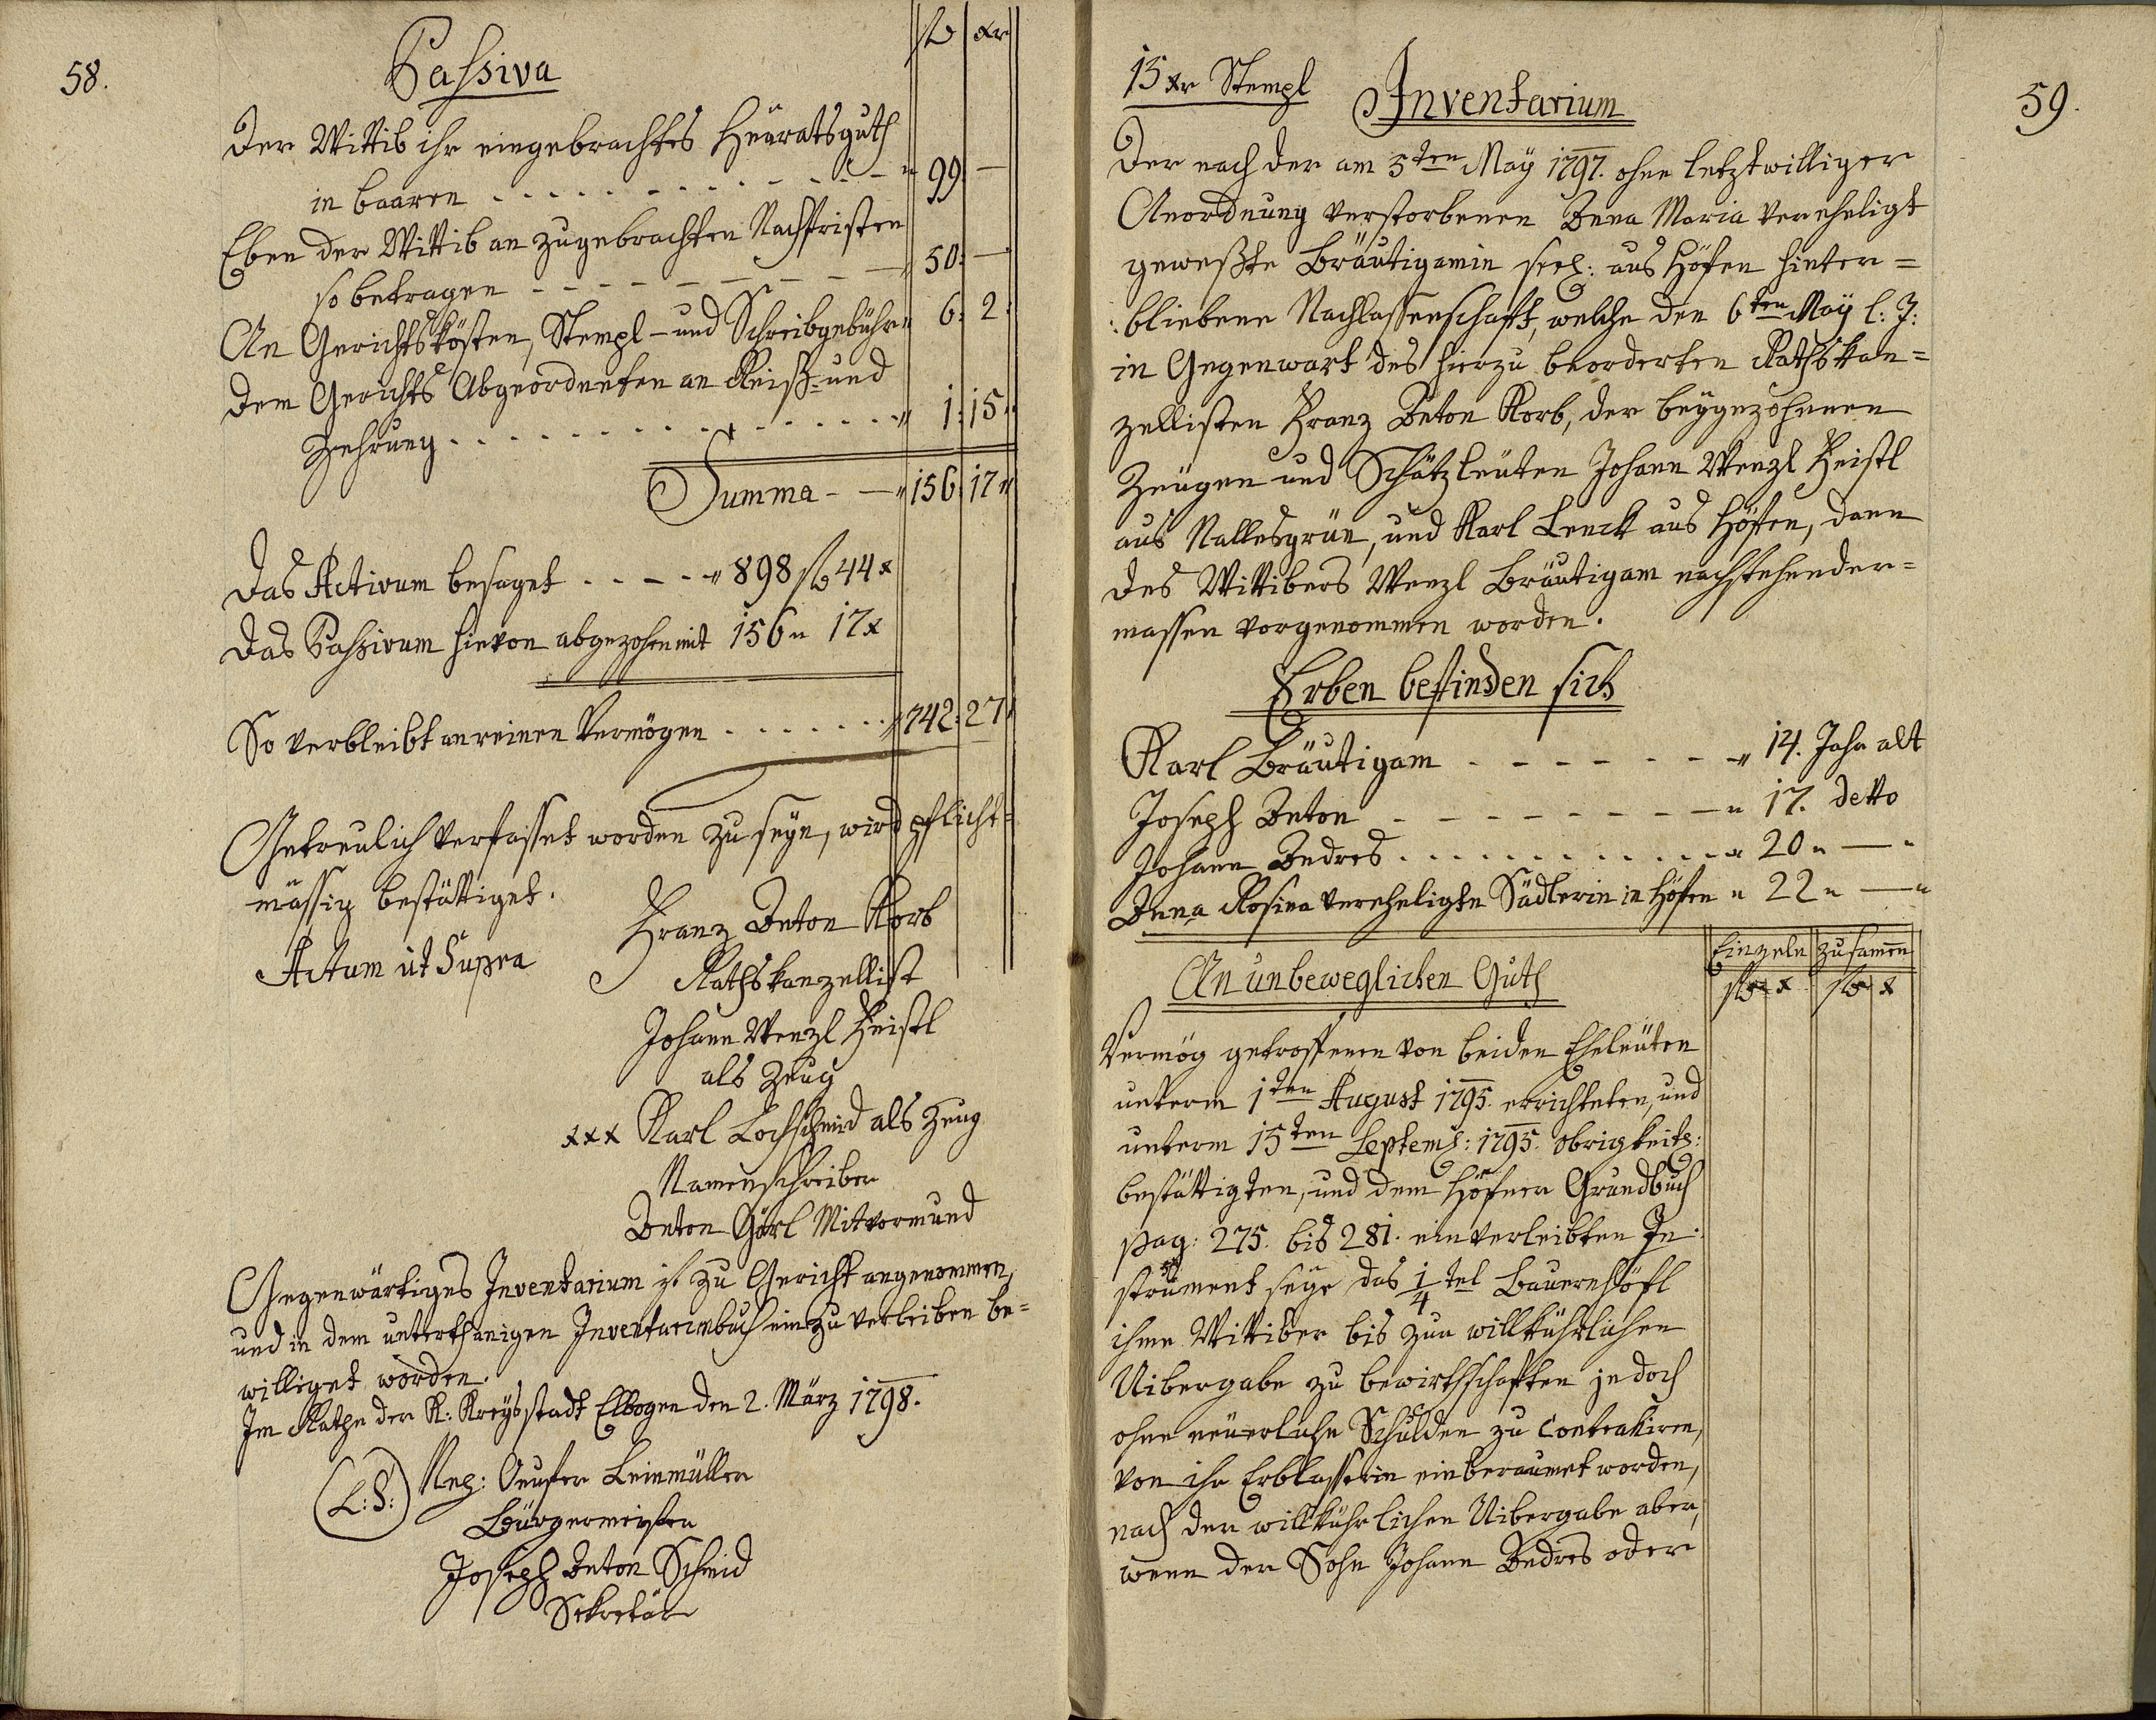 58.
Passiva
fl xr
Der Wittib ihr eingebrachtes Heüratsguth
in baaren - - - - - - - - - " 99 —
Eben der Wittib an zugebrachten Nachfristen
so betragen - - - - - - - - - " 50: —
An Gerichtskösten, Stempl- und Schreibgebühr " 6: 2:
Dem Gerichts Abgeordneten an Reiß- und
Zehrung . . . . . . . . . . . . " 1: 15 "
Summa - — " 156: 17 "
Das Activum besaget . . - . - " 898 fl 44 x
Das Passivum hievon abgezohen mit 156 " 17 x
So verbleibt an reinen Vermögen . . . . . . " 742: 27
Getreulich verfasset worden zu seyn, wird pflicht=
mässig bestättiget.
Actum ut Supra
Franz Anton Korb
Rathskanzellist
Johann Wenzl Heistl
als Zeug
xxx Karl Lochschmid als Zeug
Namenschreiber
Anton Görl Mitvormund
Gegenwärtiges Inventarium ist zu Gericht angenommen,
und in dem unterthanigen Inventariumbuch einzuverleiben be=
williget worden.
Im Rathe der K: Kreÿsstadt Elbogen den 2. März 1798.
(L: S:) Leinmüller
Bürgermeister
Joseph Anton Schmid
Sekretär
59.
15 xr Stempl
Inventarium
Der nach der am 5ten Maÿ 1797. ohne letztwilliger
Anordnung verstorbenen Anna Maria vereheligt
geweßte Bräutigamin seel: aus Höfen hinter=
:bliebene Nachlassenschaft, welche den 6ten Maÿ l: J:
in Gegenwart des hierzu beorderten Rathskan=
zellisten Franz Anton Korb, der beÿgezohenen
Zeügen und Schätzleüten Johann Wenzl Heistl
aus Nallesgrün, und Karl Lenck aus Höfen, dann
des Wittibers Wenzl Bräutigam nachstehender=
massen vorgenommen worden.
Erben befinden sich
Karl Bräutigam - - - - - - - " 14. Jahr alt
Joseph Anton - - - - - - - - — " 17. detto
Johann Andres . . . . . . . . . . " 20 " — "
Anna Rosina verehelig­te Sädlerin in Höfen " 22 " — "
Einzeln zusamen
An unbeweglichen Guth
fl x fl x
Vermög getroffenen von beiden Eheleüten
unterm 1ten August 1795. errichteten, und
unterm 15ten Septemb: 1795. obrigkeitl:
bestättigten, und dem Höfner Grundbuch
pag: 275. bis 281. einverleibten In:
strument seÿe das 1/4tel Bauernhöfl
ihme Wittiber bis zur willkührlichen
Uibergabe zu bewirthschaften jedoch
ohne neüerliche Schulden zu contrahiren,
von ihr Erblasserin einberaumet worden,
nach der willkührlichen Uibergabe aber,
wenn der Sohn Johann Andres oder